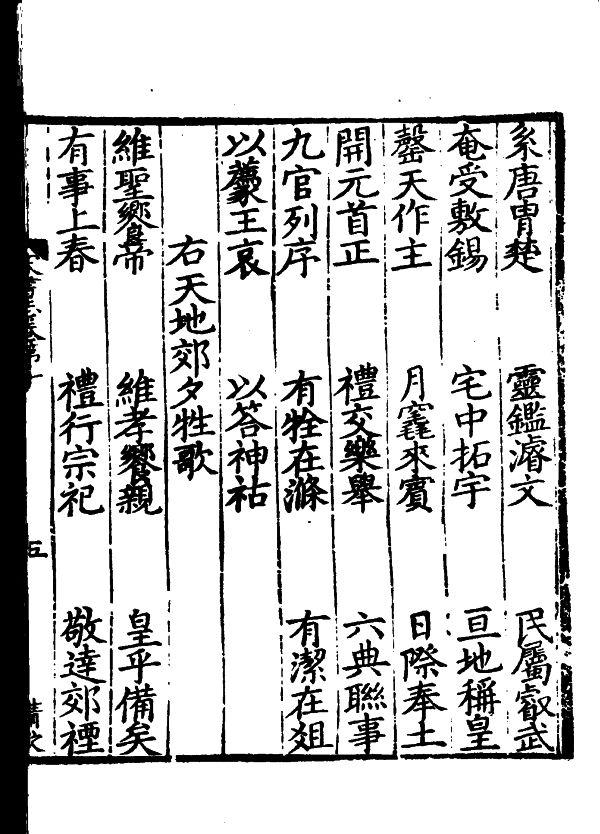 系唐胄楚　靈鑑濬文　民屬叡武
奄受敷錫　宅中拓宇　亘地稱皇
罄天作主　月竁來賓　日際奉土
開元首正　禮交樂舉　六典聯事
九官列序　有牷在滌　有潔在俎
以薦王衷　以答神祜
右天地郊夕牲歌
維聖饗帝　維孝饗親　皇乎備矣
有事上春　禮行宗祀　敬達郊禋
五